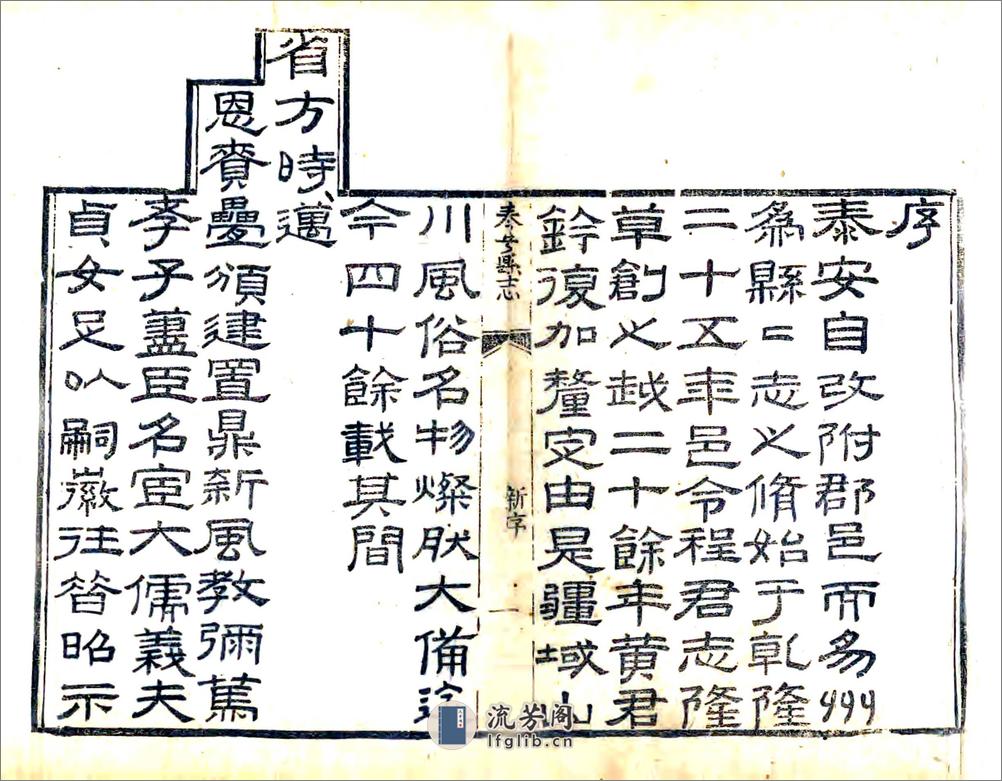 序
泰安自改附郡邑而易州
爲縣〻志之脩始于乾隆
二十五年邑令程君志隆
草創之越二十餘年黃君
鈐復加釐定由是疆域山
泰安縣志
新序
一
川風俗名物燦然大備迄
今四十餘載其間
省方時邁
恩賚疊頒建置鼎新風教彌篤
孝子藎臣名宦大儒義夫
貞女足以嗣徽往昔昭示
流芳阁
lfglib.cn